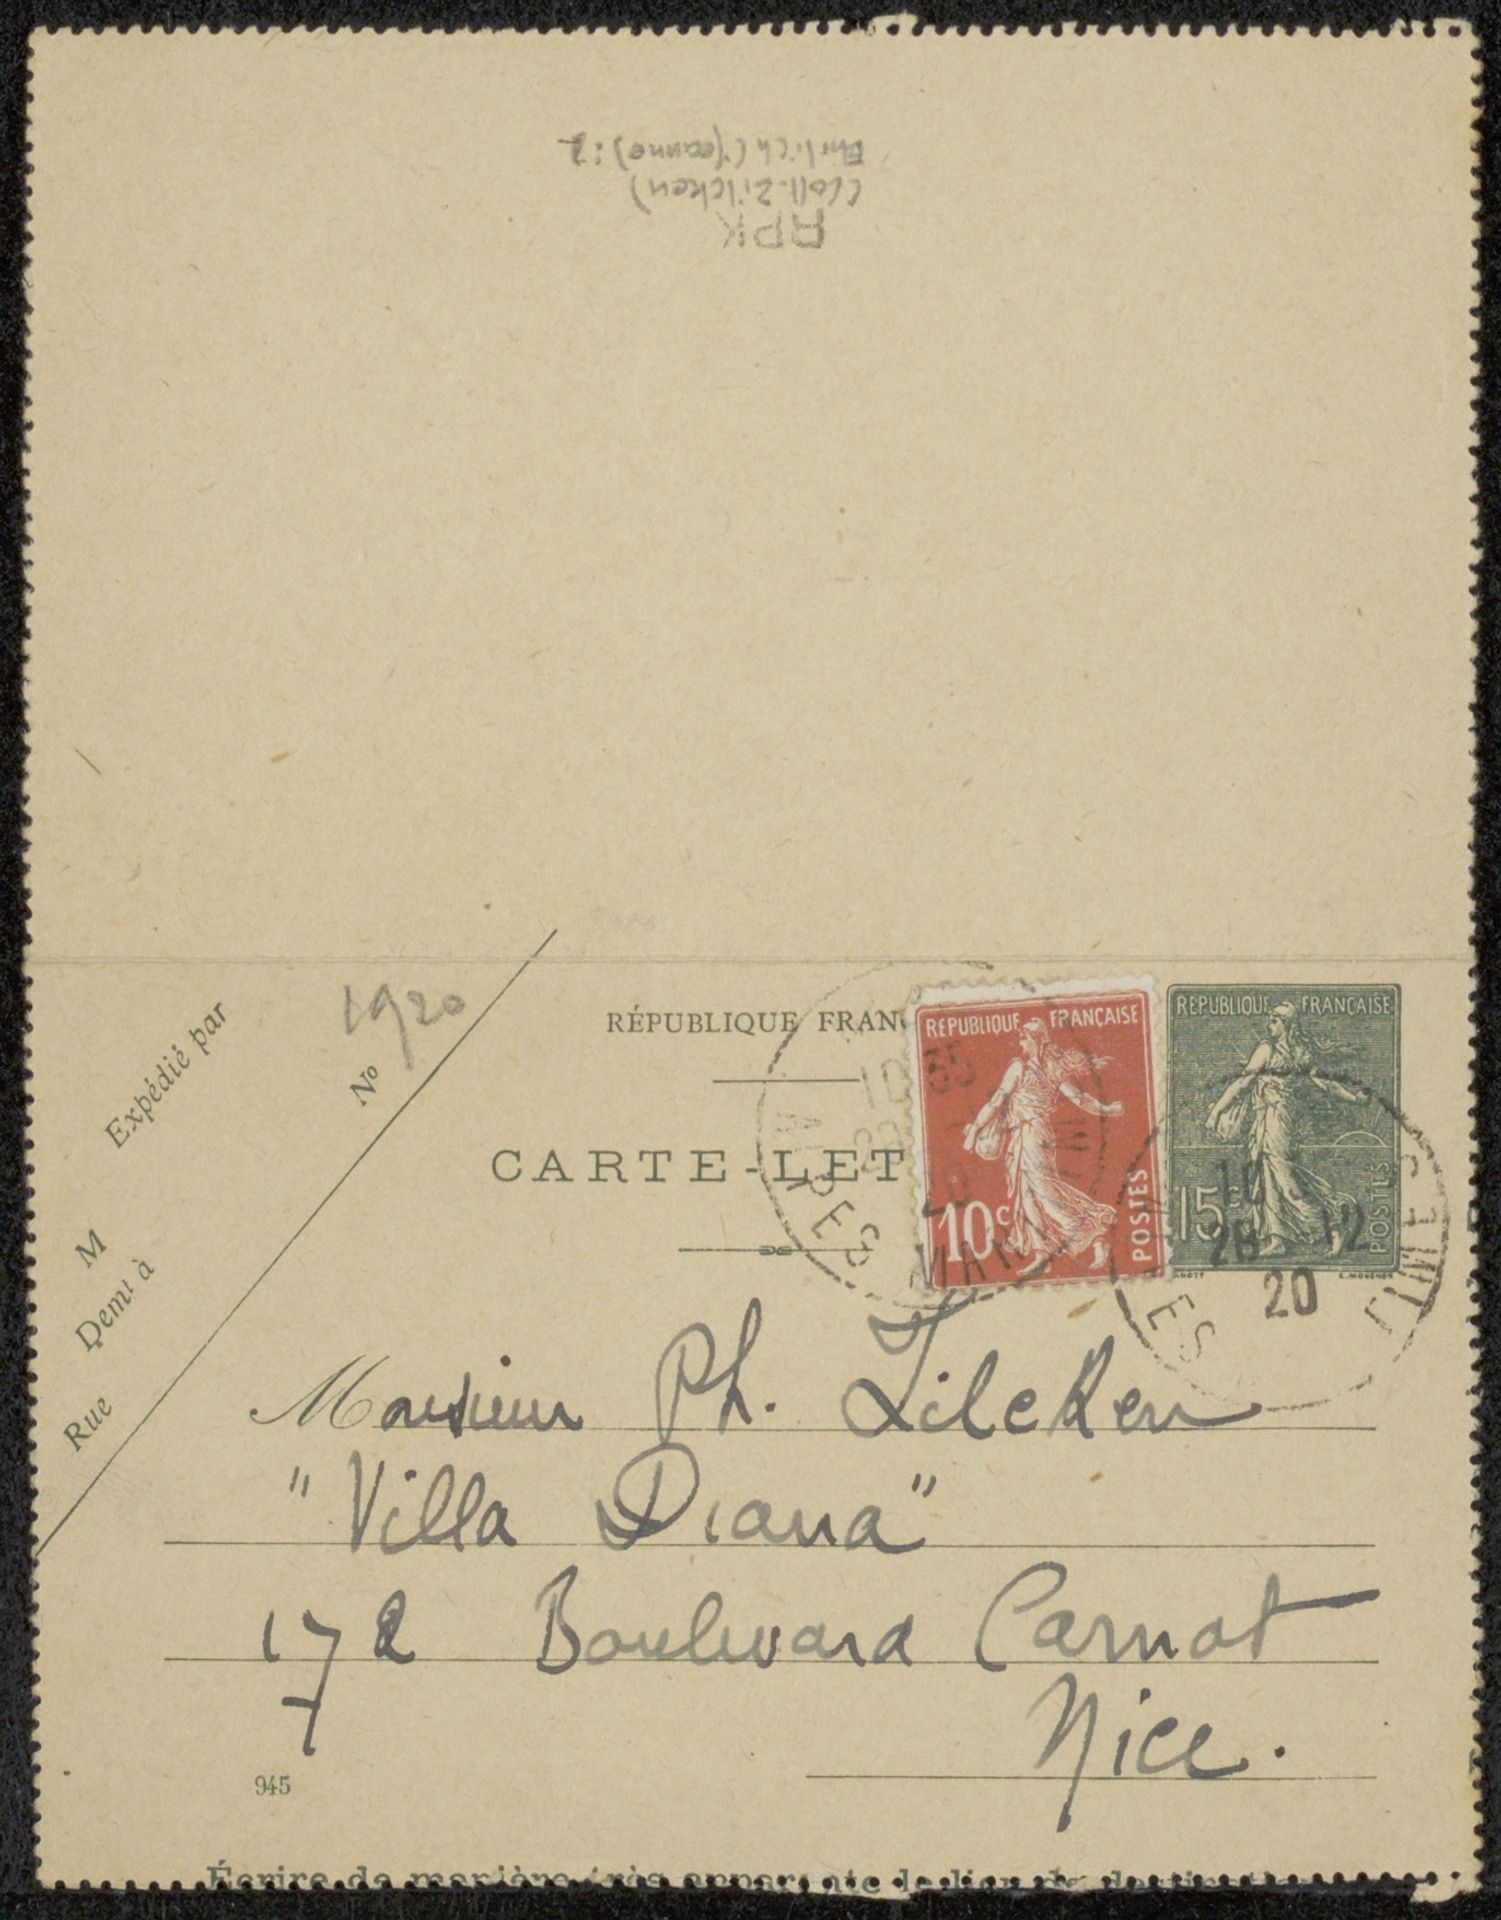 Ehrlich (Jeanne): 2
(Coll. Zilcken)
RPK
Expédié par
M
Demt à
Rue
No
1920
RÉPUBLIQUE FRAN
CARTE-LET
REPUBLIQUE FRANÇAISE
10c
POSTES
REPUBLIQUE FRANÇAISE
15c
POSTES
10 35
20
ALPES MARITIM
10
28 12
20
ES
TIMES
Monsieur Ph. Zilcken
"Villa Diana"
172 Boulevard Carnot
Nice.
945
Écrire de manière très apparente le lieu de